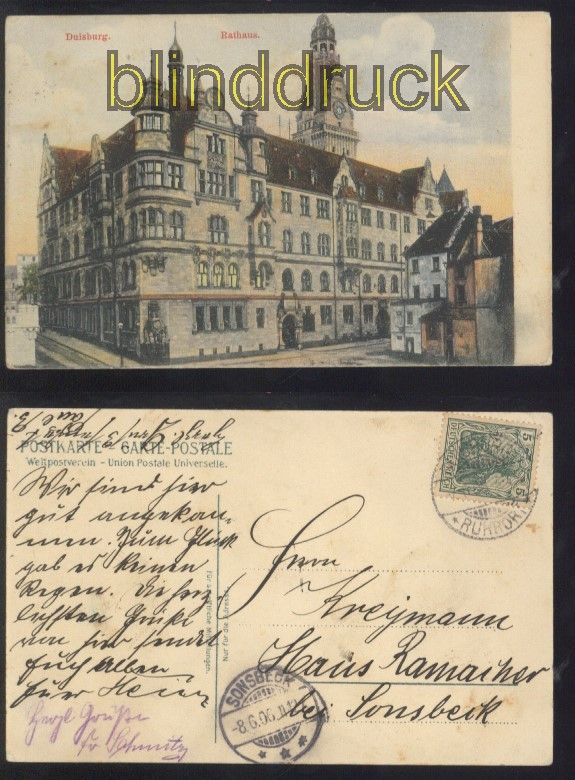 Duisburg. Rathaus.
blinddruck
POSTKARTE - CARTE-POSTALE
Weltpostverein - Union Postale Universelle.
Wir sind hier
gut angekom-
men. Zum Glück
gab es keinen
Regen. Die herz-
lichsten Grüße
von hier sendet
Euch Allen
Euer Hein
Herzl Grüße
Fr Schmitz
Für schriftliche Mitteilungen.
Nur für die Adresse.
5 5
RUHRORT
Herrn
Kreymann
Haus Ramacher
bei Sonsbeck
SONSBECK
-8.6.06.